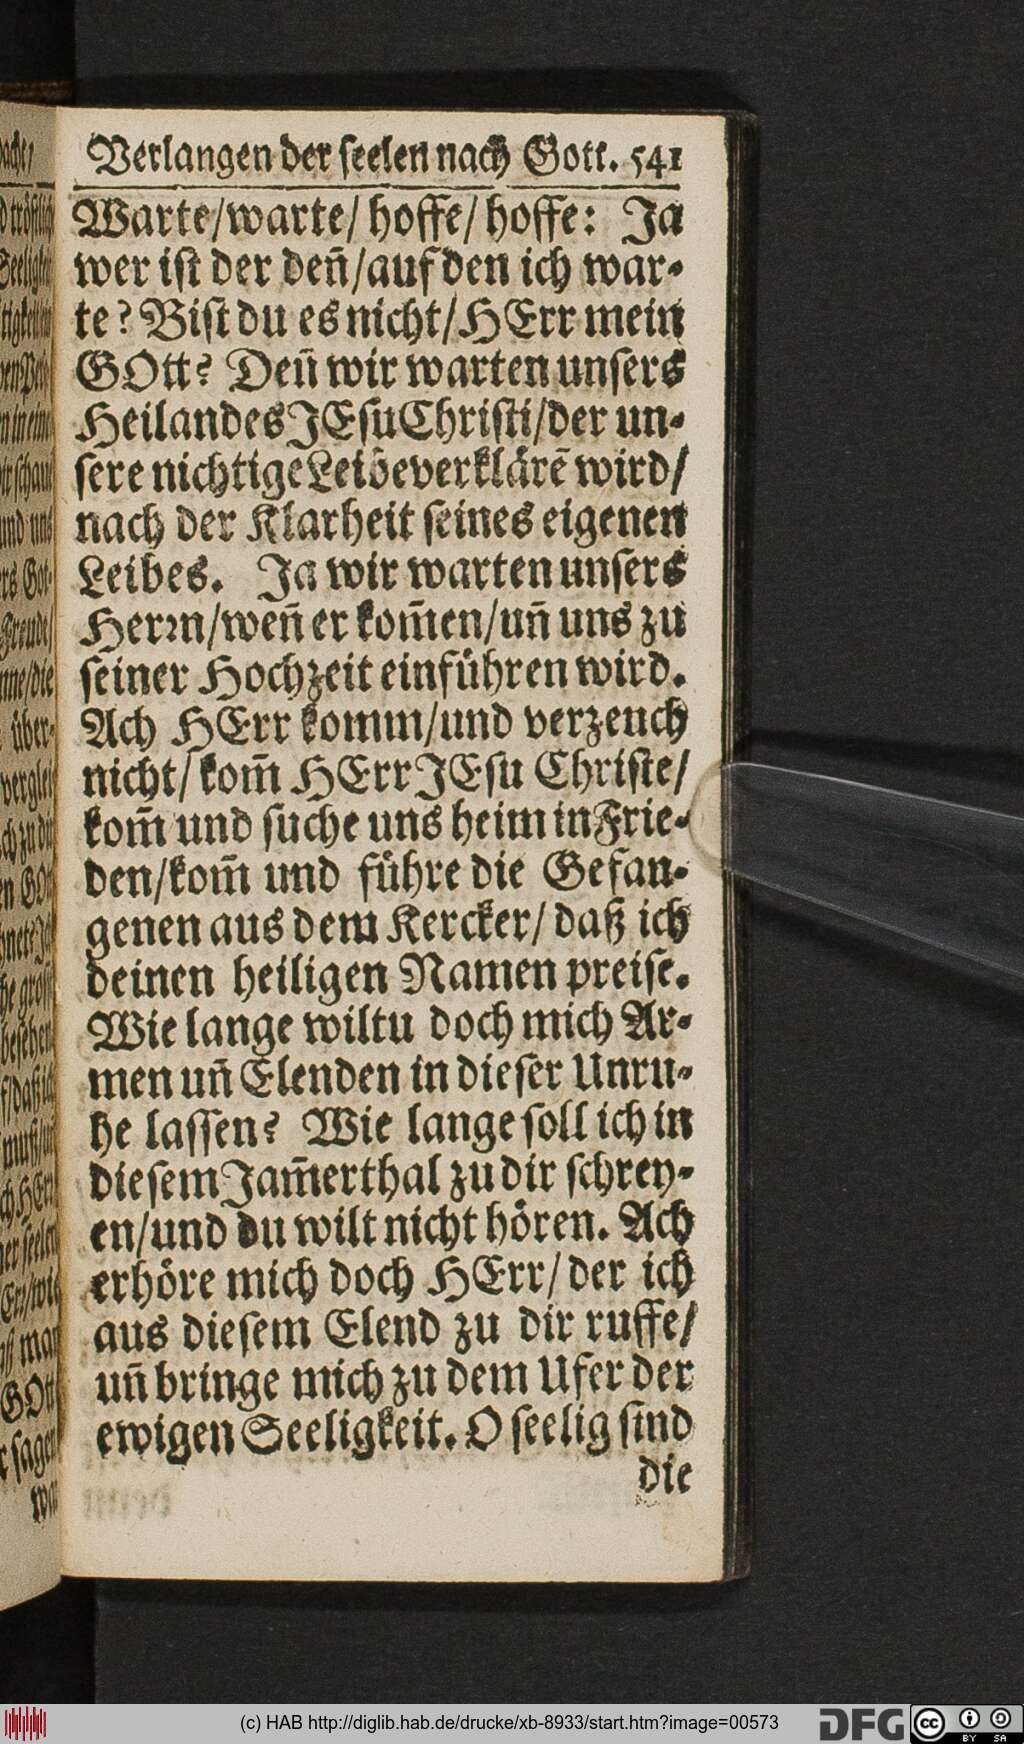 Verlangen der seelen nach Gott. 541
Warte/warte/ hoffe/ hoffe: Ja
wer ist der deñ/auf den ich war-
te? Bist du es nicht/HErr mein
GOtt? Deñ wir warten unsers
Heilandes JEsu Christi/der un-
sere nichtige Leibe verklärē wird/
nach der Klarheit seines eigenen
Leibes. Ja wir warten unsers
Herrn/weñ er kom̃en/uñ uns zu
seiner Hochzeit einführen wird.
Ach HErr komm/und verzeuch
nicht/kom̃ HErr JEsu Christe/
kom̃ und suche uns heim in Frie-
den/kom̃ und führe die Gefan-
genen aus dem Kercker/ daß ich
deinen heiligen Namen preise.
Wie lange wiltu doch mich Ar-
men uñ Elenden in dieser Unru-
he lassen? Wie lange soll ich in
diesem Jam̃erthal zu dir schrey-
en/und du wilt nicht hören. Ach
erhöre mich doch HErr/ der ich
aus diesem Elend zu dir ruffe/
uñ bringe mich zu dem Ufer der
ewigen Seeligkeit. O seelig sind
die
(c) HAB http://diglib.hab.de/drucke/xb-8933/start.htm?image=00573
DFG
cc BY SA